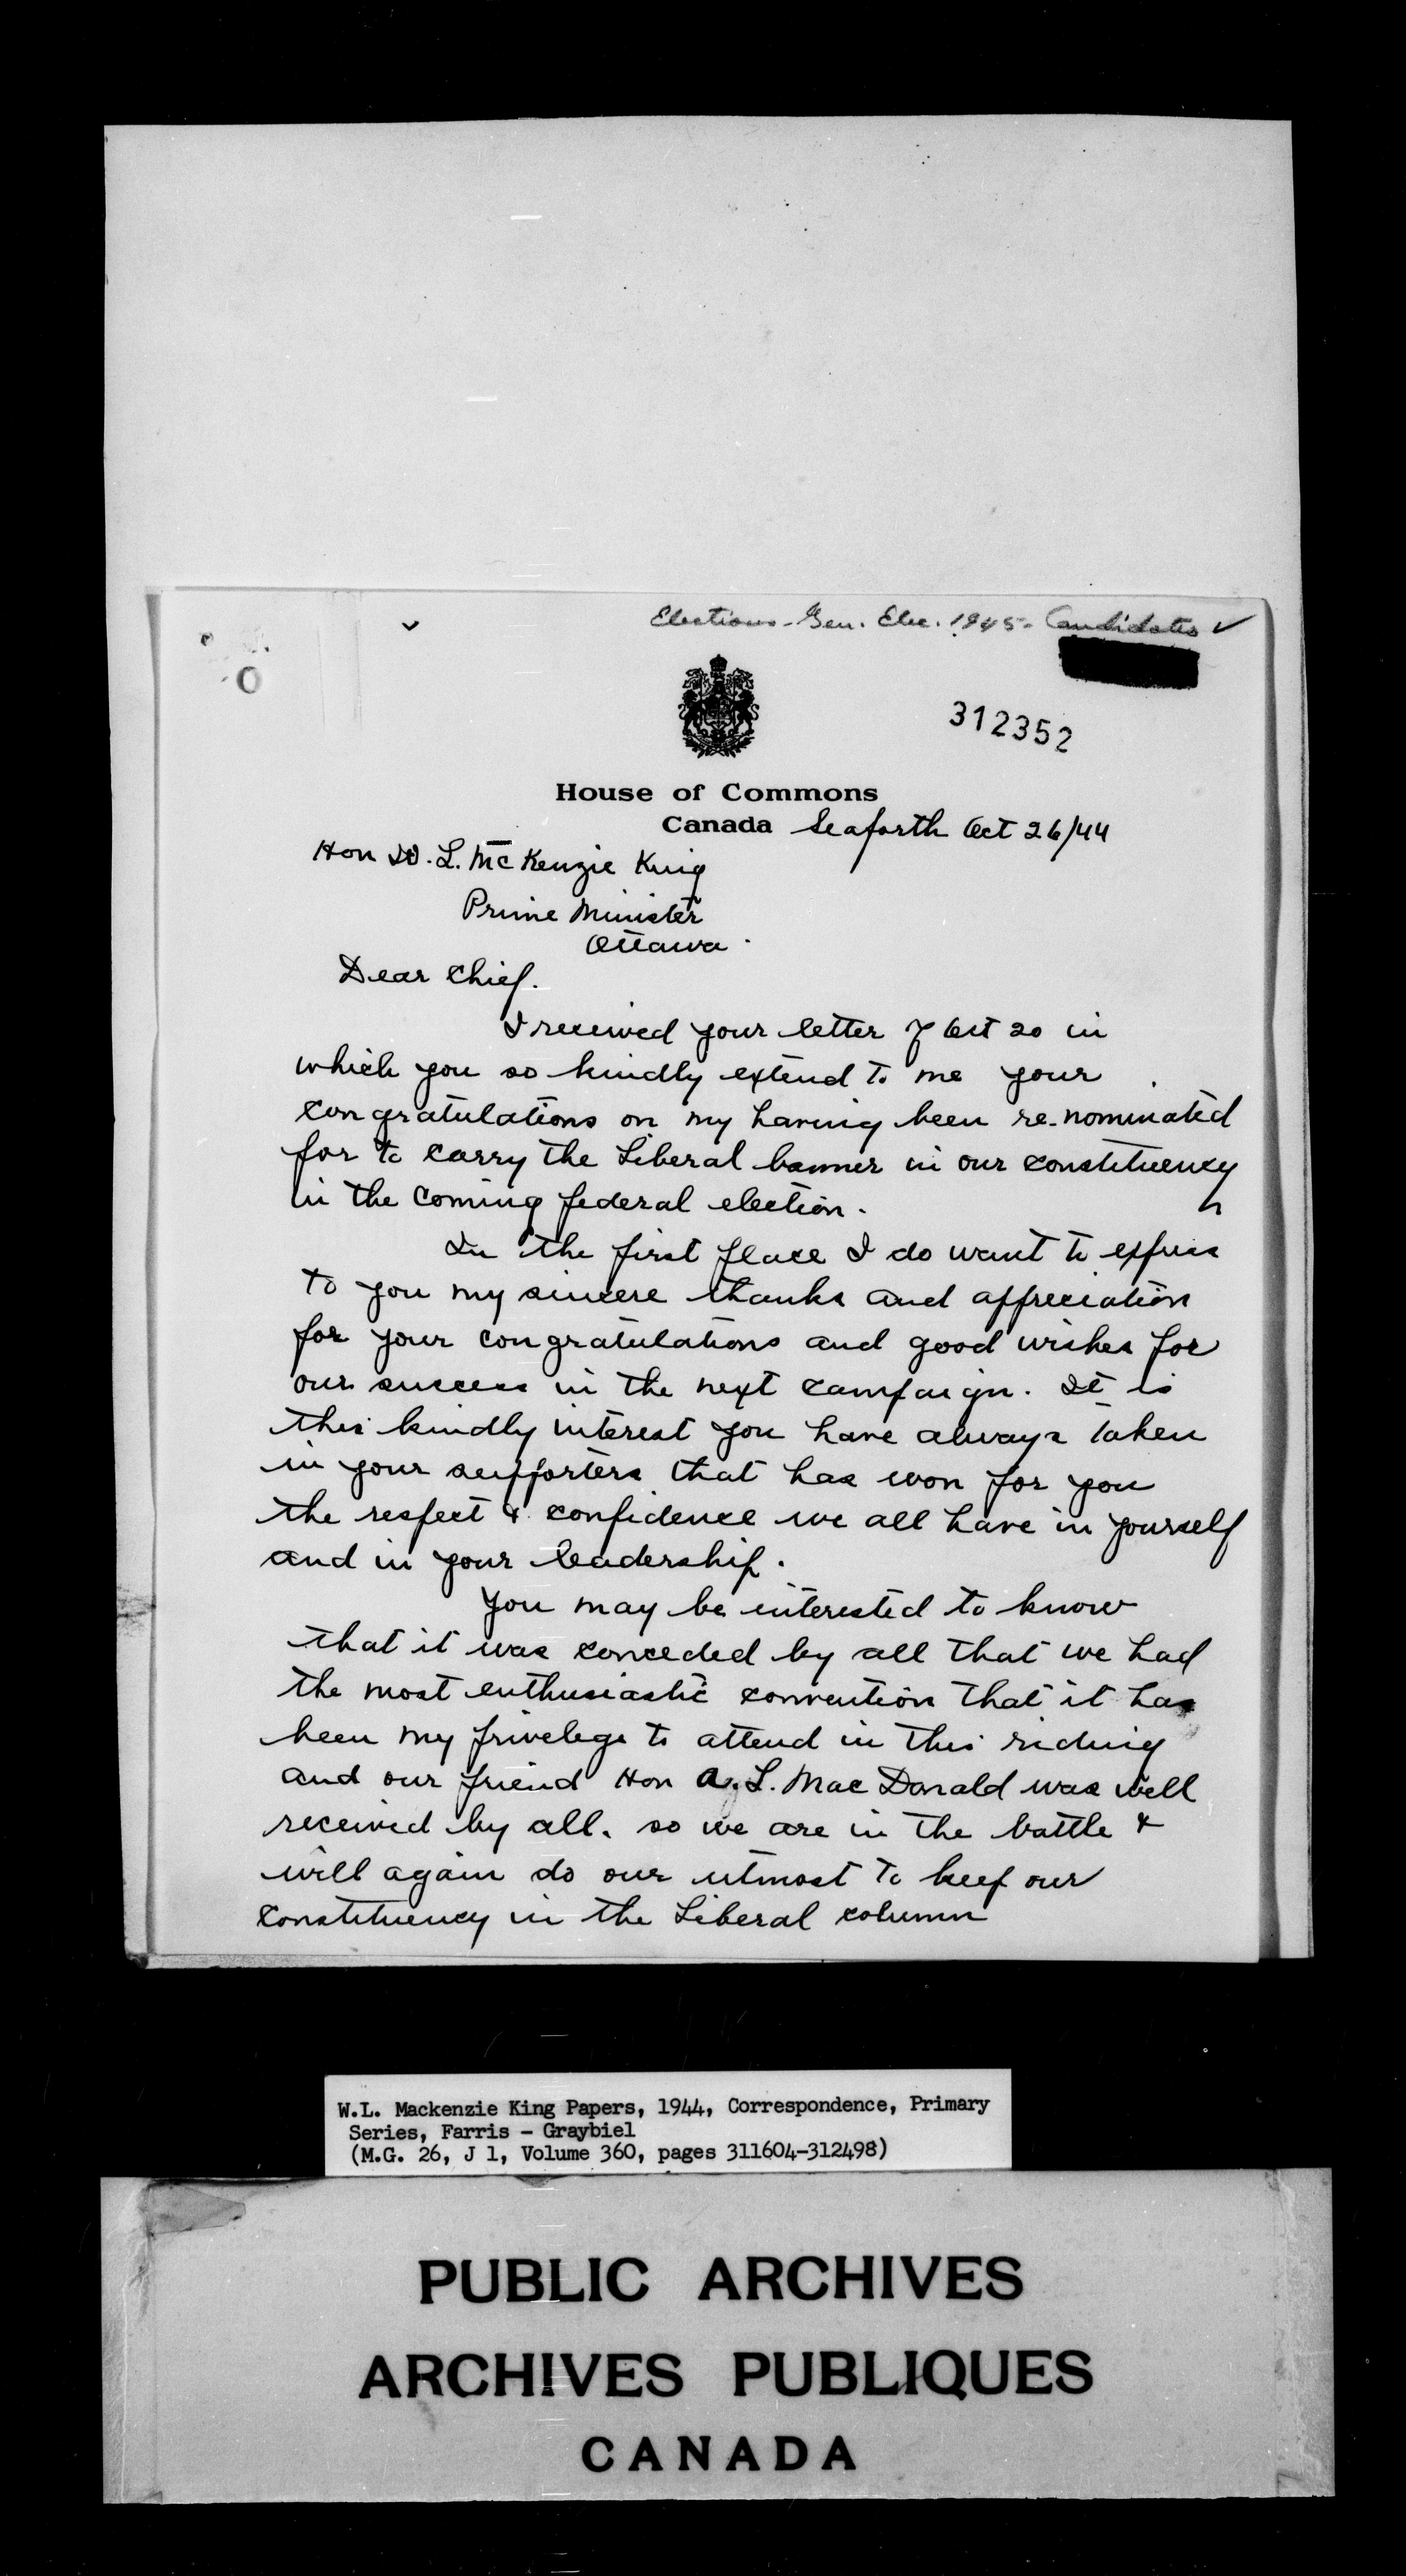 Elections - Gen. Elec. 1945 - Candidates ✓
312352
House of Commons
Canada Seaforth Oct 26/44
Hon W. L. McKenzie King
Prime Minister
Ottawa.
Dear Chief.
I received your letter of Oct 20 in
which you so kindly extend to me your
congratulations on my having been re-nominated
for to carry the Liberal banner in our constituency
in the coming federal election.
In the first place I do want to express
to you my sincere thanks and appreciation
for your congratulations and good wishes for
our success in the next campaign. It is
this kindly interest you have always taken
in your supporters that has won for you
the respect & confidence we all have in yourself
and in your leadership.
You may be interested to know
that it was conceded by all that we had
the most enthusiastic convention that it has
been my privelege to attend in this riding
and our friend Hon A. L. MacDonald was well
received by all. so we are in the battle &
will again do our utmost to keep our
constituency in the Liberal column
W.L. Mackenzie King Papers, 1944, Correspondence, Primary
Series, Farris - Graybiel
(M.G. 26, J 1, Volume 360, pages 311604-312498)
PUBLIC ARCHIVES
ARCHIVES PUBLIQUES
CANADA